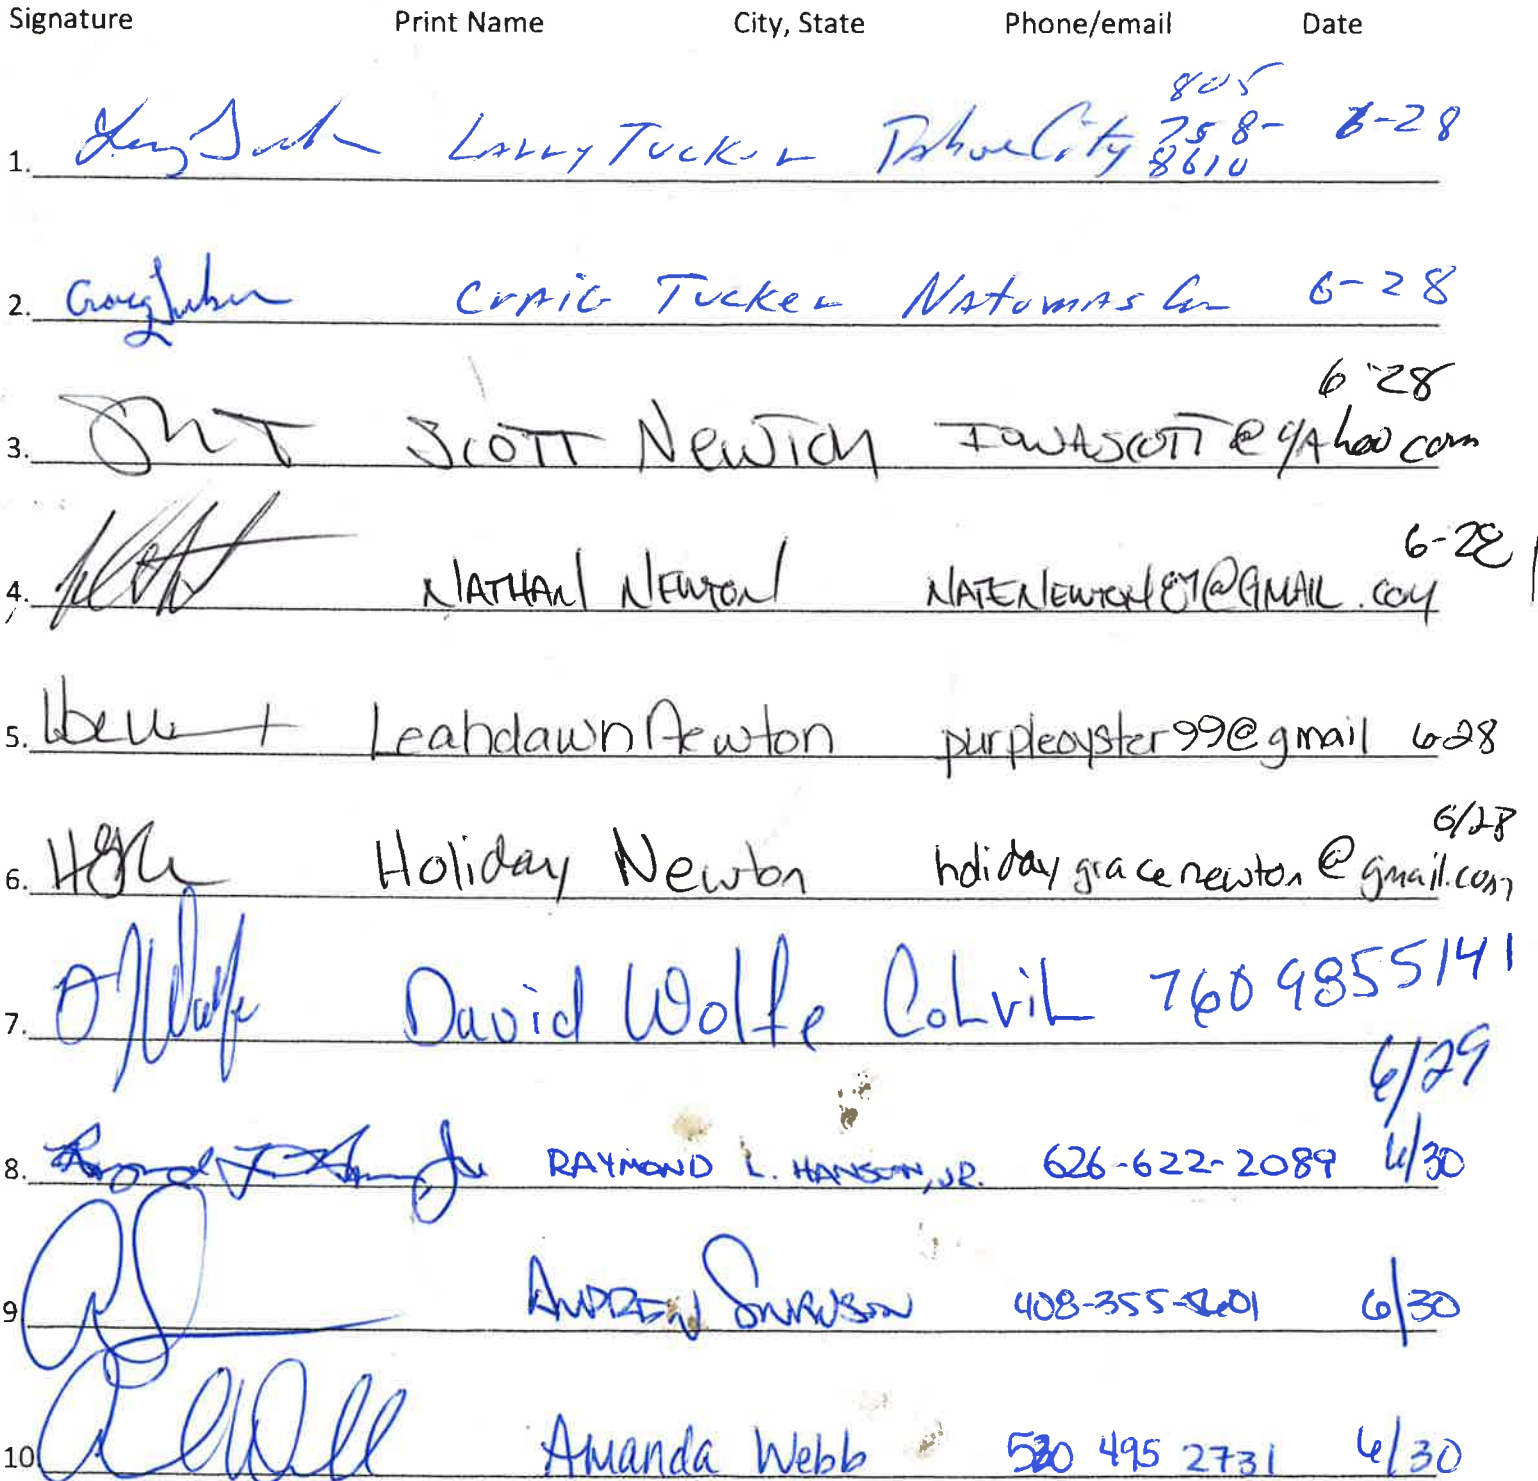 Signature Print Name City, State Phone/email Date
1. Larry Tucker Tahoe City 805 758-8610 6-28
2. Craig Tucker Natomas Ca 6-28
3. Scott Newton IOWASCOTT@yahoo com 6-28
4. NATHAN NEWTON NATENEWTON87@GMAIL.COM 6-28
5. Leahdawn Newton purpleoyster99@gmail 6-28
6. Holiday Newton holidaygracenewton@gmail.com 6/28
7. David Wolfe CoLviL 760 9855141 6/29
8. RAYMOND L. HANSON, JR. 626-622-2089 6/30
9 ANDREW 408-355- 6/30
10 Amanda Webb 530 495 2731 6/30